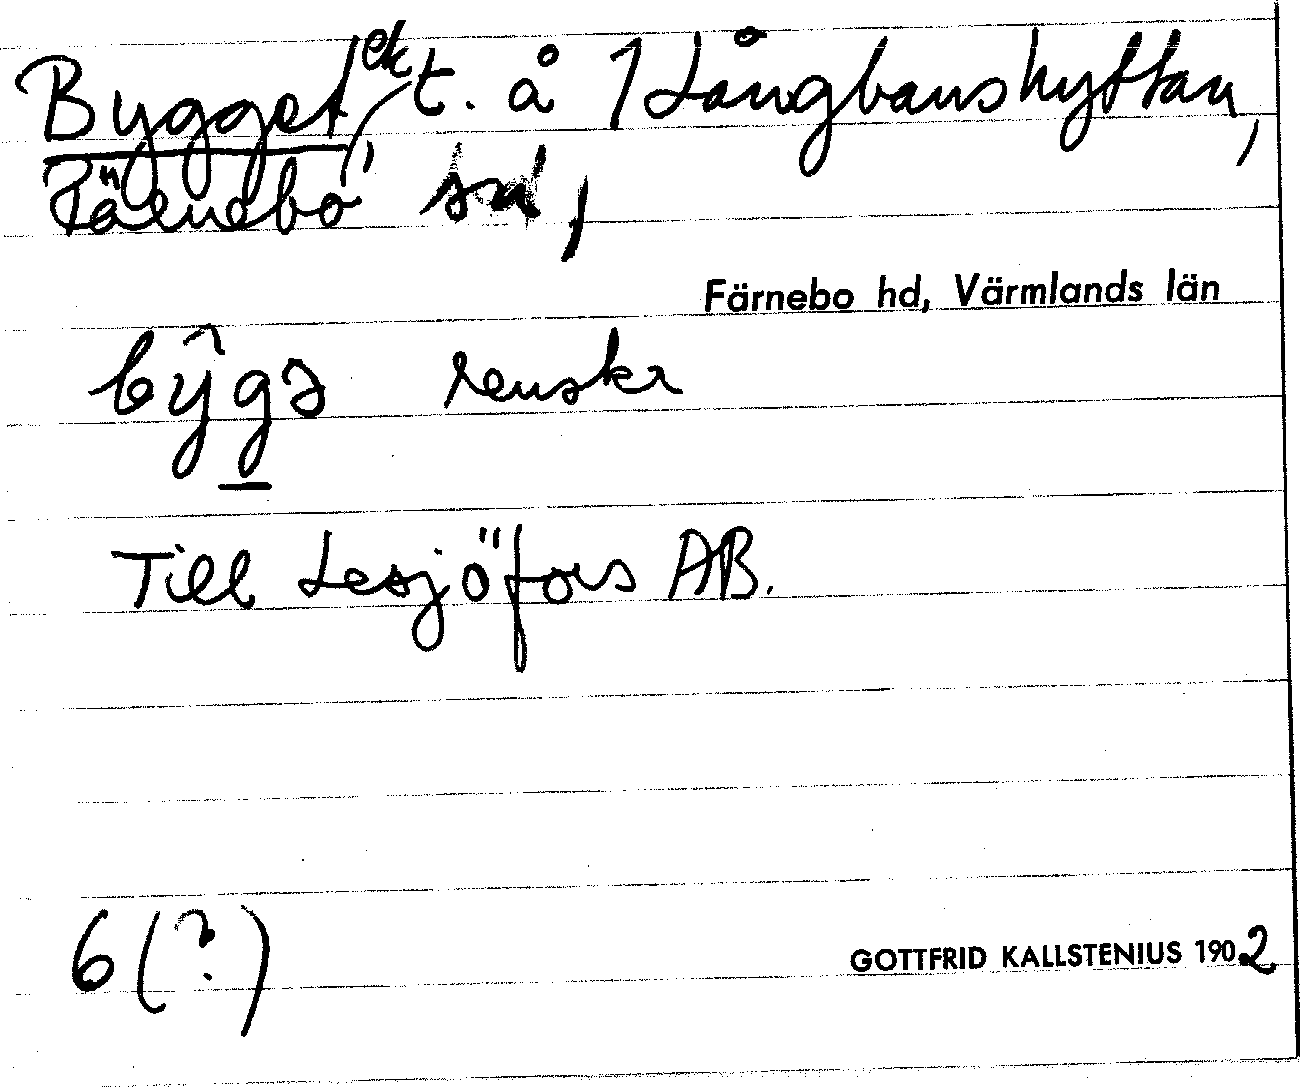 Bygget, ek t. å 1 Långbanshyttan,
Färnebo sn,
Färnebo hd, Värmlands län
bŷgə renskr
Till Lesjöfors AB.
6 (?)
GOTTFRID KALLSTENIUS 1902